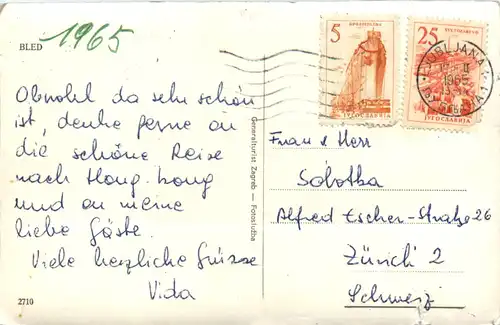 BLED
1965
Obwohl da sehr schön
ist, denke gerne an
die schöne Reise
nach Hong-kong
und an meine
liebe Gäste.
Viele herzliche Grüsse
Vida
2719
Generalturist Zagreb — Fotoslužba
5
JUGOSLAVIJA
25
JUGOSLAVIJA
LJUBLJANA
1965
Frau & Herr
Sobotka
Alfred Escher-Straße 26
Zürich 2
Schweiz